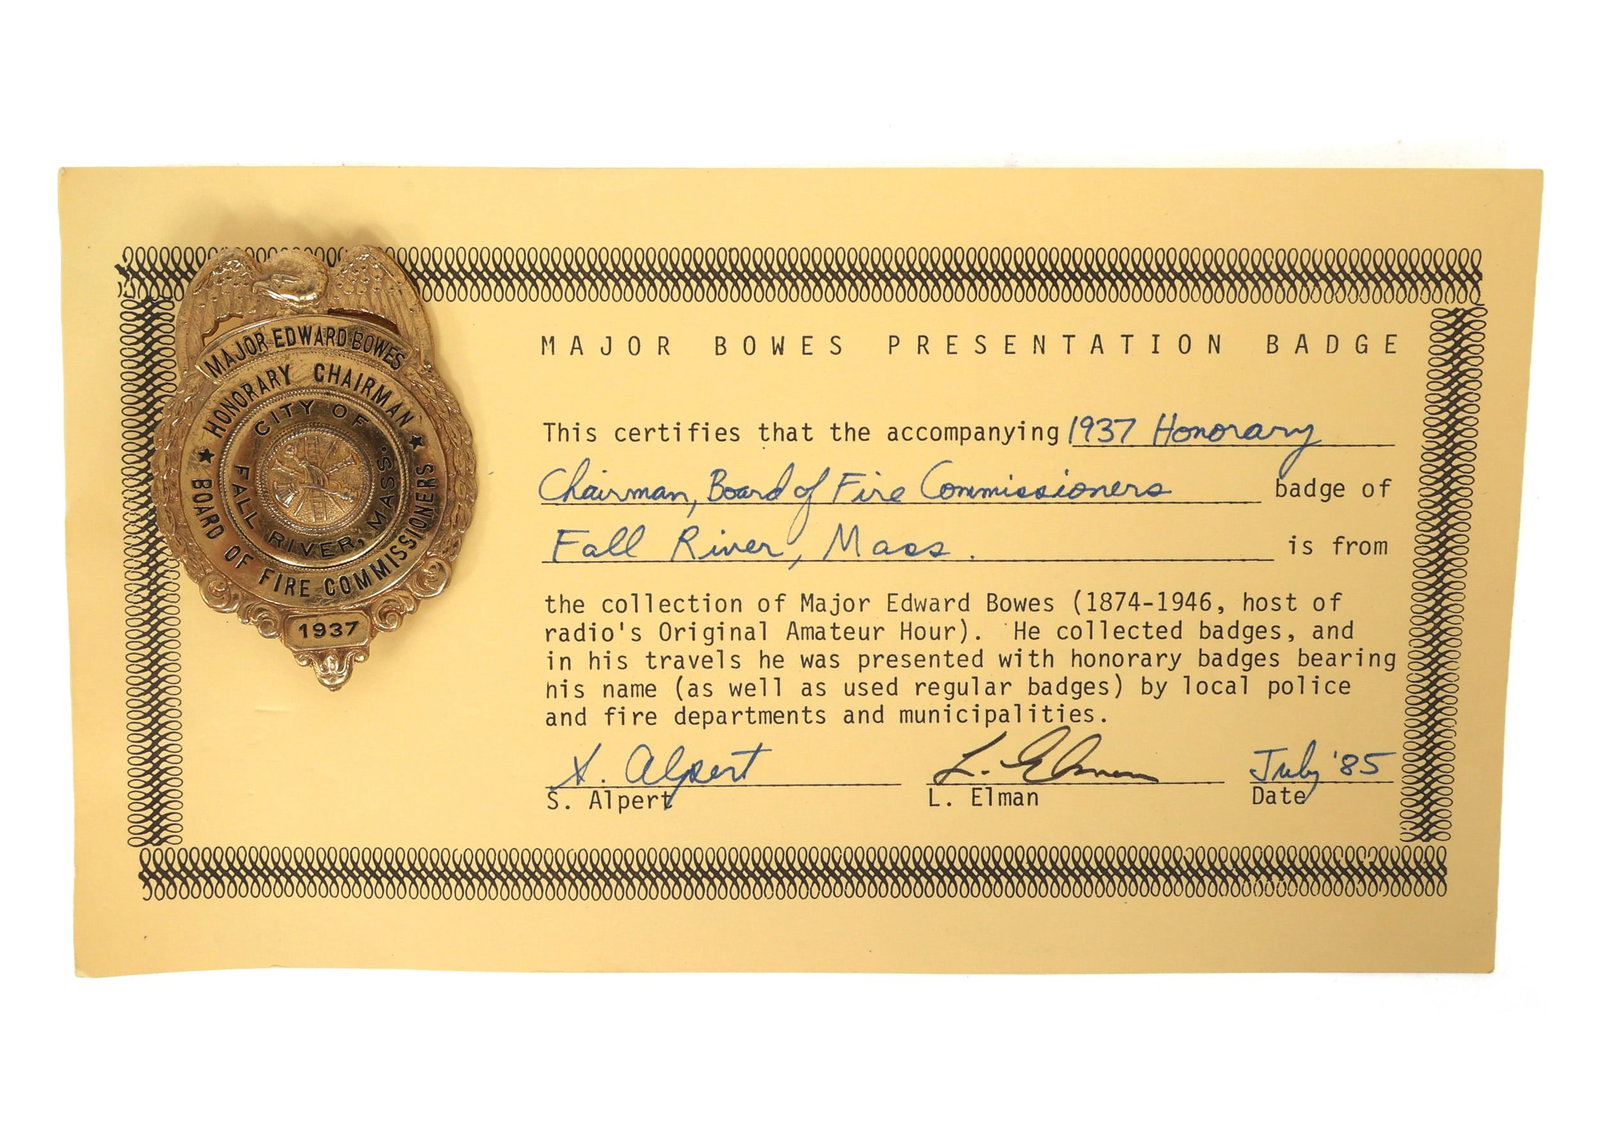 MAJOR EDWARD BOWES
HONORARY CHAIRMAN
BOARD OF FIRE COMMISSIONERS
CITY OF
FALL RIVER, MASS.
1937
MAJOR BOWES PRESENTATION BADGE
This certifies that the accompanying 1937 Honorary
Chairman, Board of Fire Commissioners badge of
Fall River, Mass. is from
the collection of Major Edward Bowes (1874-1946, host of
radio's Original Amateur Hour). He collected badges, and
in his travels he was presented with honorary badges bearing
his name (as well as used regular badges) by local police
and fire departments and municipalities.
S. Alpert L. Elman July '85
S. Alpert L. Elman Date